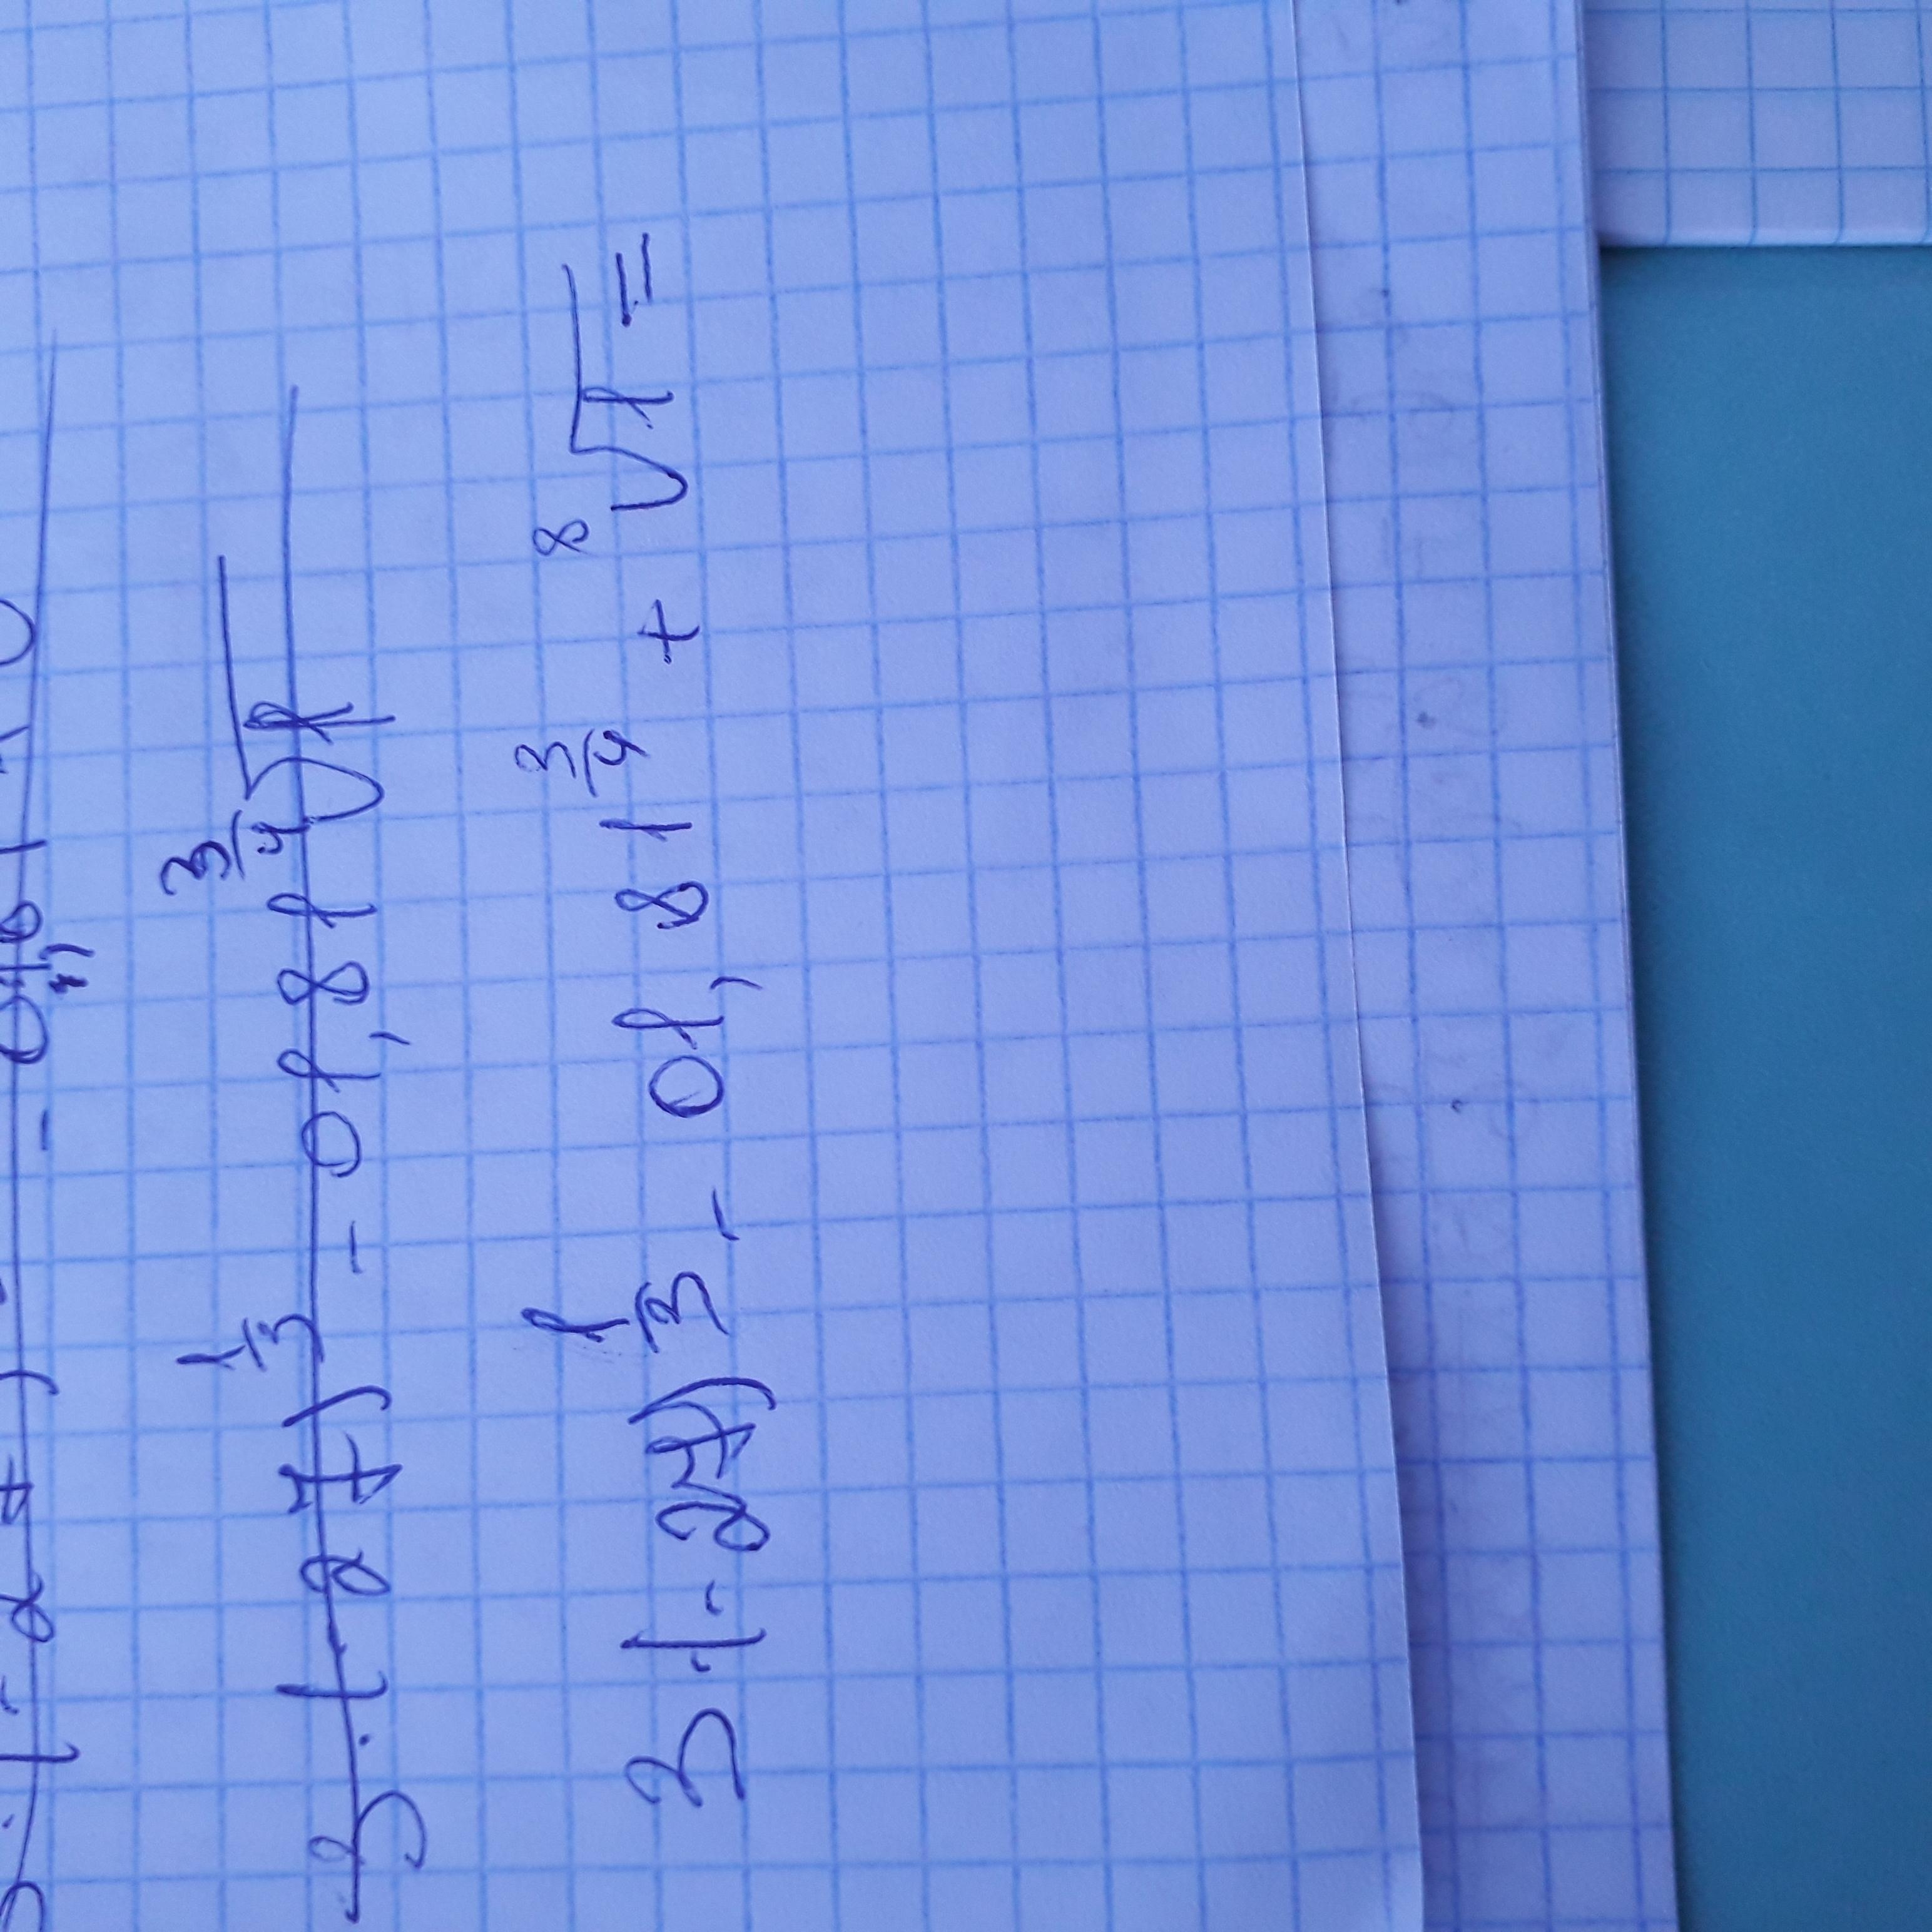 3·(-27)^(1/3) - 01,81^(3/4) √1
3·(-27)^(1/3) - 01,81^(3/4) + ⁸√1 =